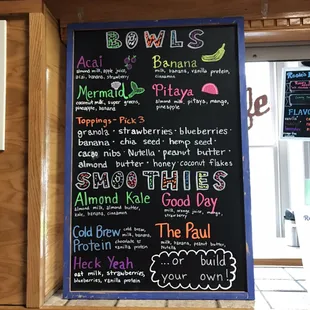 BOWLS
Acai
almond milk, apple juice,
acai, banana, strawberry
Banana
milk, banana, vanilla protein,
cinnamon
Mermaid
coconut milk, super greens,
pineapple, banana
Pitaya
almond milk, pitaya, mango,
pineapple
Toppings - Pick 3
granola · strawberries · blueberries
banana · chia seed · hemp seed
cacao nibs · Nutella · peanut butter
almond butter · honey · coconut flakes
SMOOTHIES
Almond Kale
almond milk, almond butter,
kale, banana, cinnamon
Good Day
milk, orange juice, mango,
strawberry
Cold Brew
Protein
cold brew,
milk, banana,
chocolate or
vanilla protein
The Paul
milk, banana, peanut butter,
Nutella
Heck Yeah
oat milk, strawberries,
blueberries, vanilla protein
...or build
your own!
FLAVOR